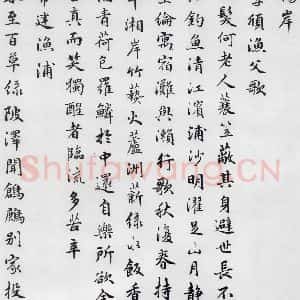 岸
李頎漁父歌
髮何老人蓑笠蔽其身避世長不
釣魚清江濱浦沙明濯足山月靜
垂綸寓宿灘與瀨行歌秋復春持
竿湘岸竹爇火蘆洲薪綠水飯香
青荷包羅鱗於中還自樂所欲全
真而笑獨醒者臨流多苦辛
常建漁浦
至百草綠陂澤聞鶬鶊別家投
Shufawang.CN